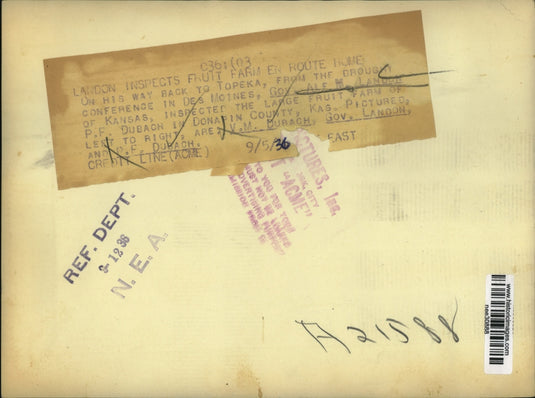 036:(03
LANDON INSPECTS FRUIT FARM EN ROUTE HOME
ON HIS WAY BACK TO TOPEKA, FROM THE DROUGHT
CONFERENCE IN DES MOINES, GOV. ALF M. LANDON
OF KANSAS, INSPECTED THE LARGE FRUIT FARM OF
P.F. DUBACH IN DONAPIN COUNTY, KAS. PICTURED,
LEFT TO RIGHT, ARE: V.M. DUBACH, GOV. LANDON,
AND P.F. DUBACH.
CREDIT LINE (ACME) 9/5/36 EAST
CTURES, Inc.
CITY
"ACME"
TO YOU FOR YOUR
MUST NOT BE
ADVERTISING
REF. DEPT.
9-12 36
N. E. A.
A21588
www.historicimages.com
nee30888